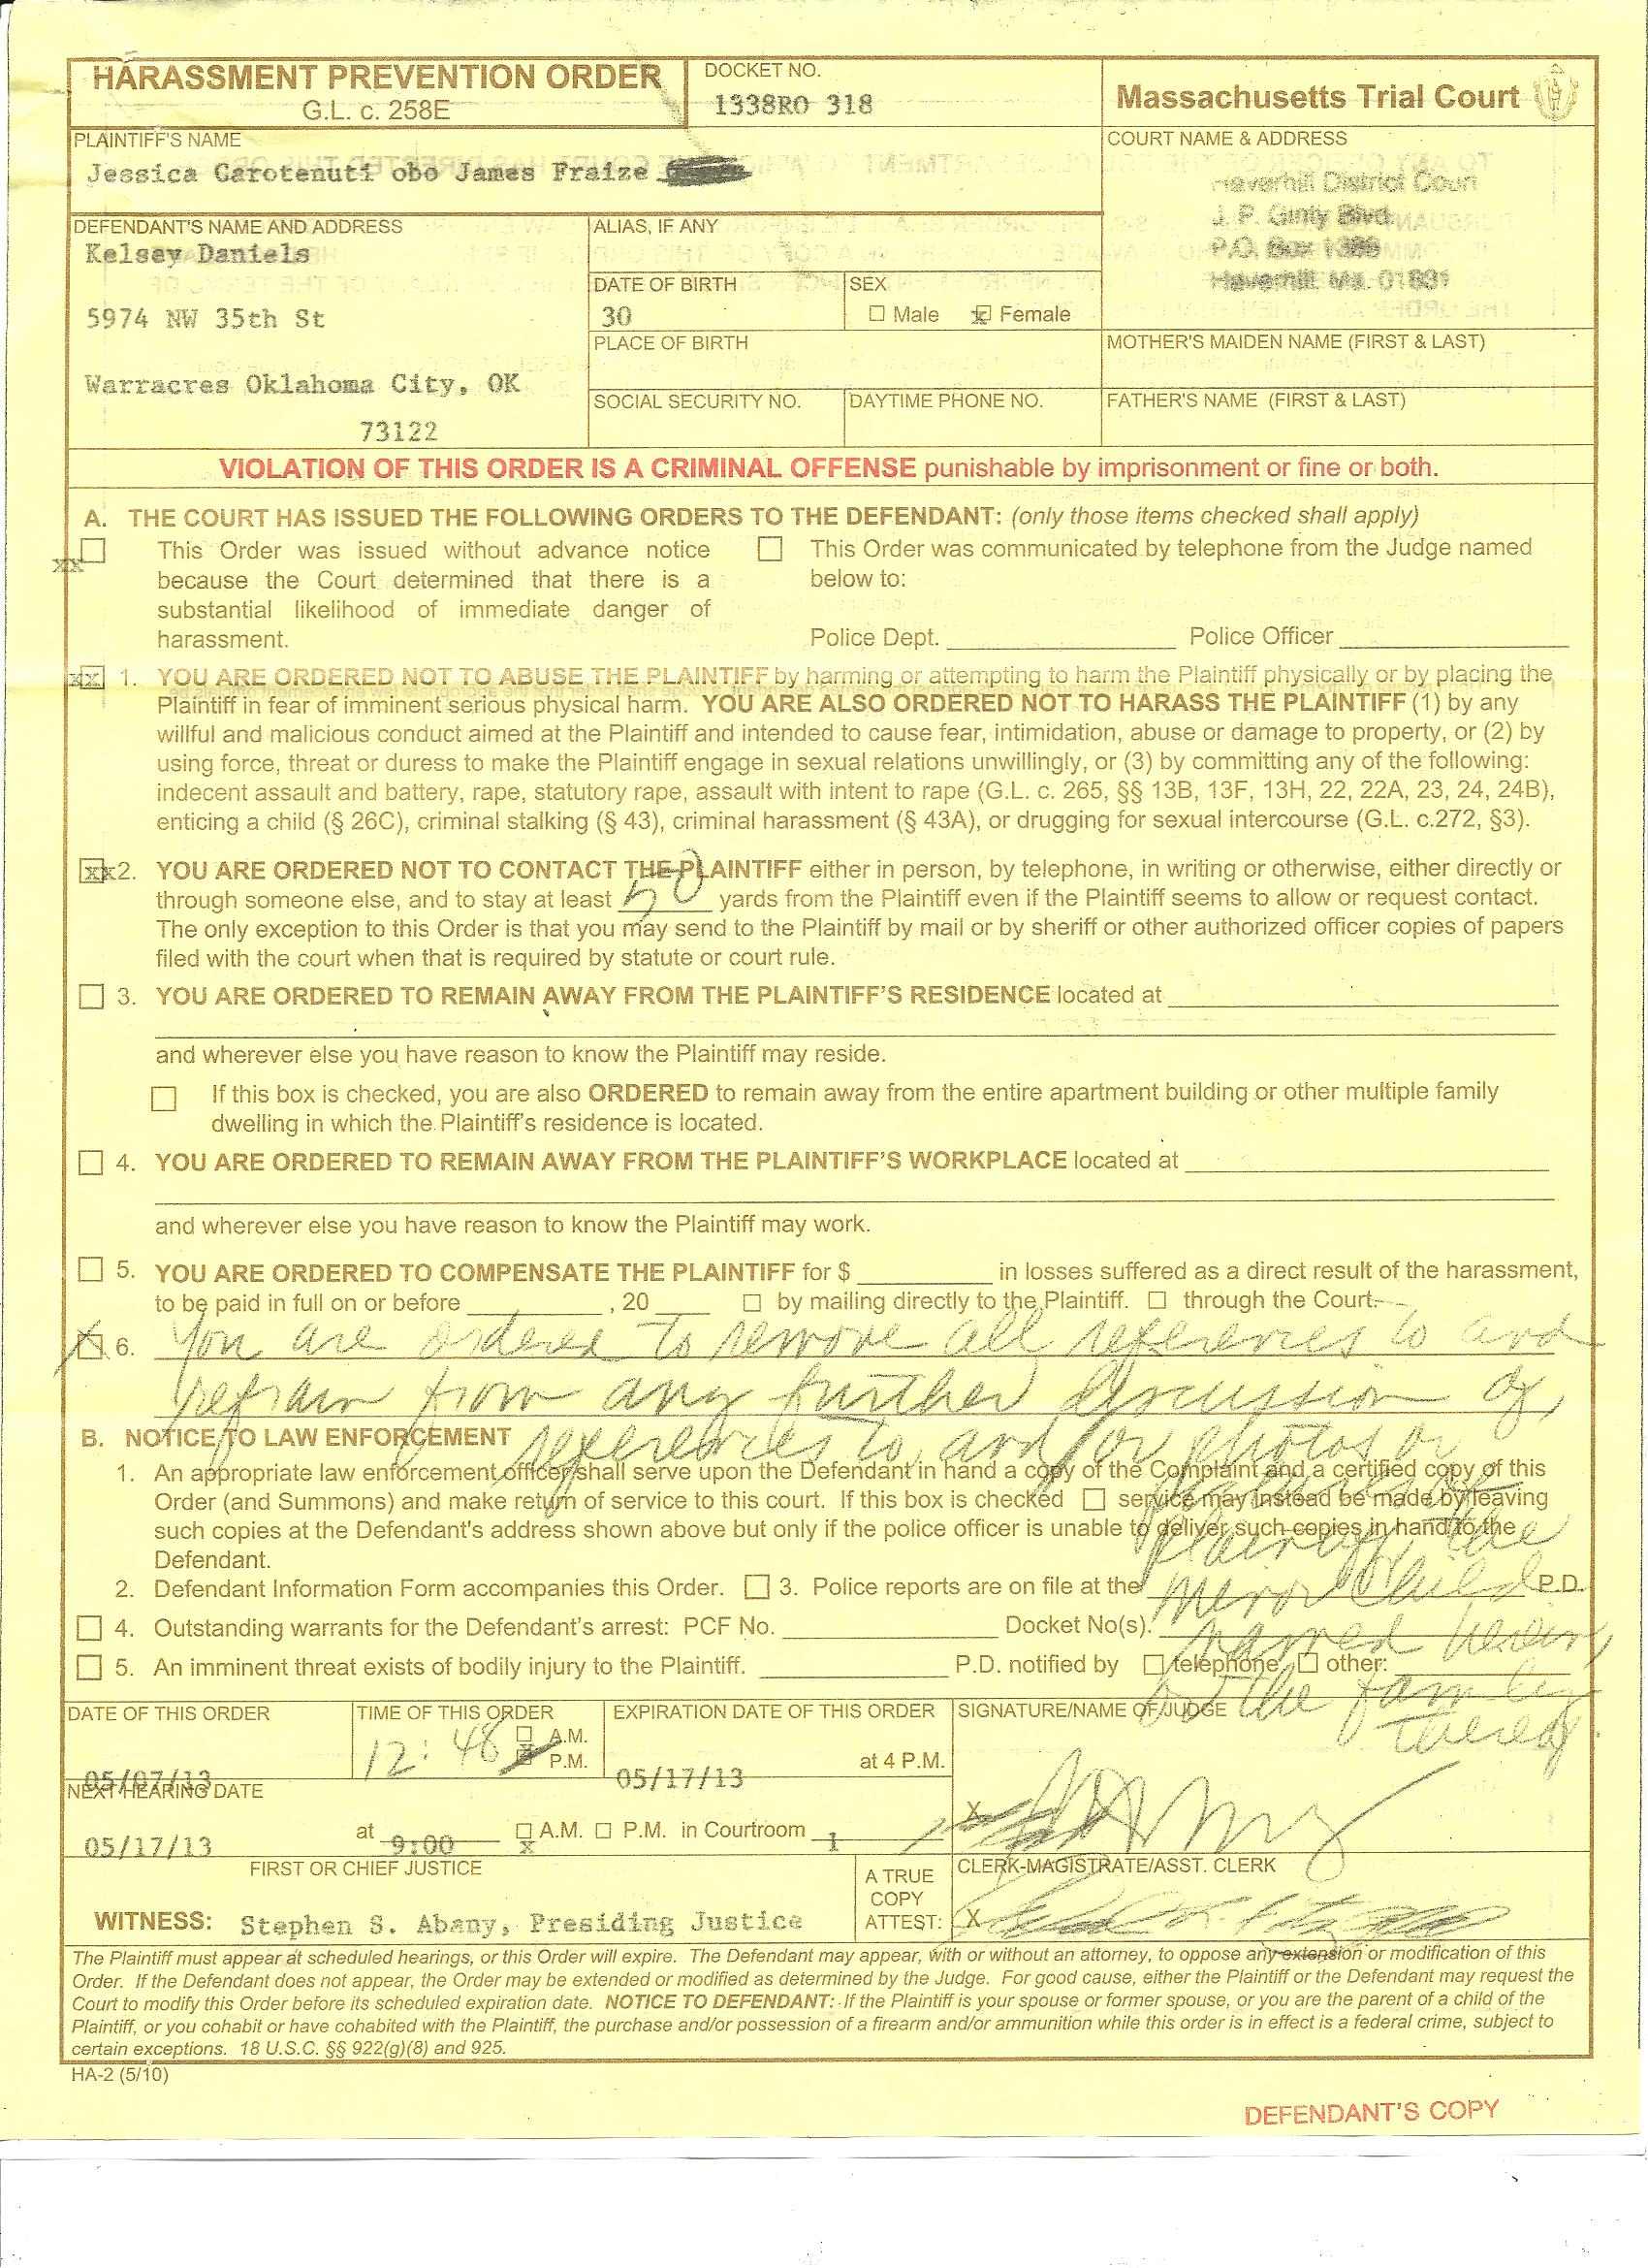 HARASSMENT PREVENTION ORDER
G.L. c. 258E
DOCKET NO.
1338RO 318
Massachusetts Trial Court
PLAINTIFF'S NAME
Jessica Carotenuti obo James Fraize
COURT NAME & ADDRESS
Haverhill District Court
J. P. Ginty Blvd.
P.O. Box 1389
Haverhill, Ma. 01831
DEFENDANT'S NAME AND ADDRESS
Kelsey Daniels
5974 NW 35th St
Warracres Oklahoma City, OK
73122
ALIAS, IF ANY
DATE OF BIRTH
30
SEX
☐ Male x Female
PLACE OF BIRTH
MOTHER'S MAIDEN NAME (FIRST & LAST)
SOCIAL SECURITY NO.
DAYTIME PHONE NO.
FATHER'S NAME (FIRST & LAST)
VIOLATION OF THIS ORDER IS A CRIMINAL OFFENSE punishable by imprisonment or fine or both.
A. THE COURT HAS ISSUED THE FOLLOWING ORDERS TO THE DEFENDANT: (only those items checked shall apply)
xx This Order was issued without advance notice
because the Court determined that there is a
substantial likelihood of immediate danger of
harassment.
This Order was communicated by telephone from the Judge named
below to:
Police Dept. Police Officer
xx 1. YOU ARE ORDERED NOT TO ABUSE THE PLAINTIFF by harming or attempting to harm the Plaintiff physically or by placing the
Plaintiff in fear of imminent serious physical harm. YOU ARE ALSO ORDERED NOT TO HARASS THE PLAINTIFF (1) by any
willful and malicious conduct aimed at the Plaintiff and intended to cause fear, intimidation, abuse or damage to property, or (2) by
using force, threat or duress to make the Plaintiff engage in sexual relations unwillingly, or (3) by committing any of the following:
indecent assault and battery, rape, statutory rape, assault with intent to rape (G.L. c. 265, §§ 13B, 13F, 13H, 22, 22A, 23, 24, 24B),
enticing a child (§ 26C), criminal stalking (§ 43), criminal harassment (§ 43A), or drugging for sexual intercourse (G.L. c.272, §3).
xx 2. YOU ARE ORDERED NOT TO CONTACT THE PLAINTIFF either in person, by telephone, in writing or otherwise, either directly or
through someone else, and to stay at least 50 yards from the Plaintiff even if the Plaintiff seems to allow or request contact.
The only exception to this Order is that you may send to the Plaintiff by mail or by sheriff or other authorized officer copies of papers
filed with the court when that is required by statute or court rule.
3. YOU ARE ORDERED TO REMAIN AWAY FROM THE PLAINTIFF'S RESIDENCE located at
and wherever else you have reason to know the Plaintiff may reside.
If this box is checked, you are also ORDERED to remain away from the entire apartment building or other multiple family
dwelling in which the Plaintiff's residence is located.
4. YOU ARE ORDERED TO REMAIN AWAY FROM THE PLAINTIFF'S WORKPLACE located at
and wherever else you have reason to know the Plaintiff may work.
5. YOU ARE ORDERED TO COMPENSATE THE PLAINTIFF for $ in losses suffered as a direct result of the harassment,
to be paid in full on or before , 20 ☐ by mailing directly to the Plaintiff. ☐ through the Court.
X 6. You are ordered to remove all references to and
refrain from any further discussion of,
references to, and/or photos or
Plaintiff, the
minor child
named herein,
or the family
thereof.
B. NOTICE TO LAW ENFORCEMENT
1. An appropriate law enforcement officer shall serve upon the Defendant in hand a copy of the Complaint and a certified copy of this
Order (and Summons) and make return of service to this court. If this box is checked ☐ service may instead be made by leaving
such copies at the Defendant's address shown above but only if the police officer is unable to deliver such copies in hand to the
Defendant.
2. Defendant Information Form accompanies this Order. ☐ 3. Police reports are on file at the P.D.
4. Outstanding warrants for the Defendant's arrest: PCF No. Docket No(s).
5. An imminent threat exists of bodily injury to the Plaintiff. P.D. notified by ☐ telephone ☐ other:
DATE OF THIS ORDER
05/07/13
TIME OF THIS ORDER
12:48 A.M.
P.M.
EXPIRATION DATE OF THIS ORDER
05/17/13 at 4 P.M.
SIGNATURE/NAME OF JUDGE
X
NEXT HEARING DATE
05/17/13 at 9:00 x A.M. ☐ P.M. in Courtroom 1
FIRST OR CHIEF JUSTICE
WITNESS: Stephen S. Abany, Presiding Justice
A TRUE
COPY
ATTEST:
CLERK-MAGISTRATE/ASST. CLERK
X
The Plaintiff must appear at scheduled hearings, or this Order will expire. The Defendant may appear, with or without an attorney, to oppose any extension or modification of this
Order. If the Defendant does not appear, the Order may be extended or modified as determined by the Judge. For good cause, either the Plaintiff or the Defendant may request the
Court to modify this Order before its scheduled expiration date. NOTICE TO DEFENDANT: If the Plaintiff is your spouse or former spouse, or you are the parent of a child of the
Plaintiff, or you cohabit or have cohabited with the Plaintiff, the purchase and/or possession of a firearm and/or ammunition while this order is in effect is a federal crime, subject to
certain exceptions. 18 U.S.C. §§ 922(g)(8) and 925.
HA-2 (5/10)
DEFENDANT'S COPY